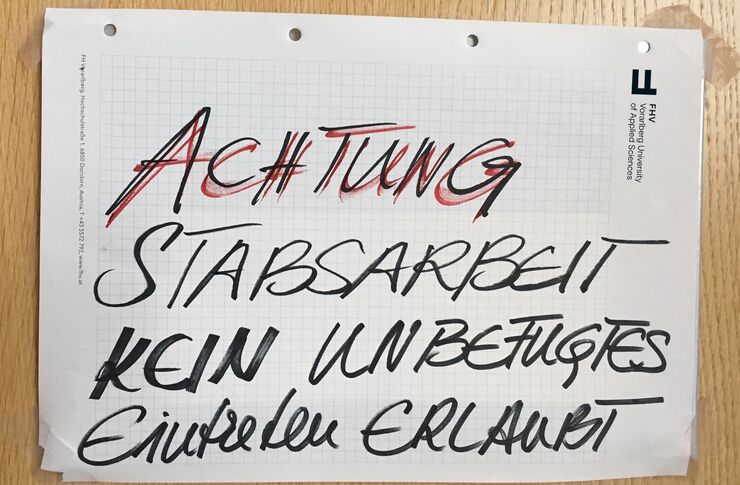 ACHTUNG
STABSARBEIT
KEIN UNBEFUGTES
Eintreten ERLAUBT
FHV
Vorarlberg University
of Applied Sciences
FH Vorarlberg, Hochschulstraße 1, 6850 Dornbirn, Austria, T +43 5572 792, www.fhv.at